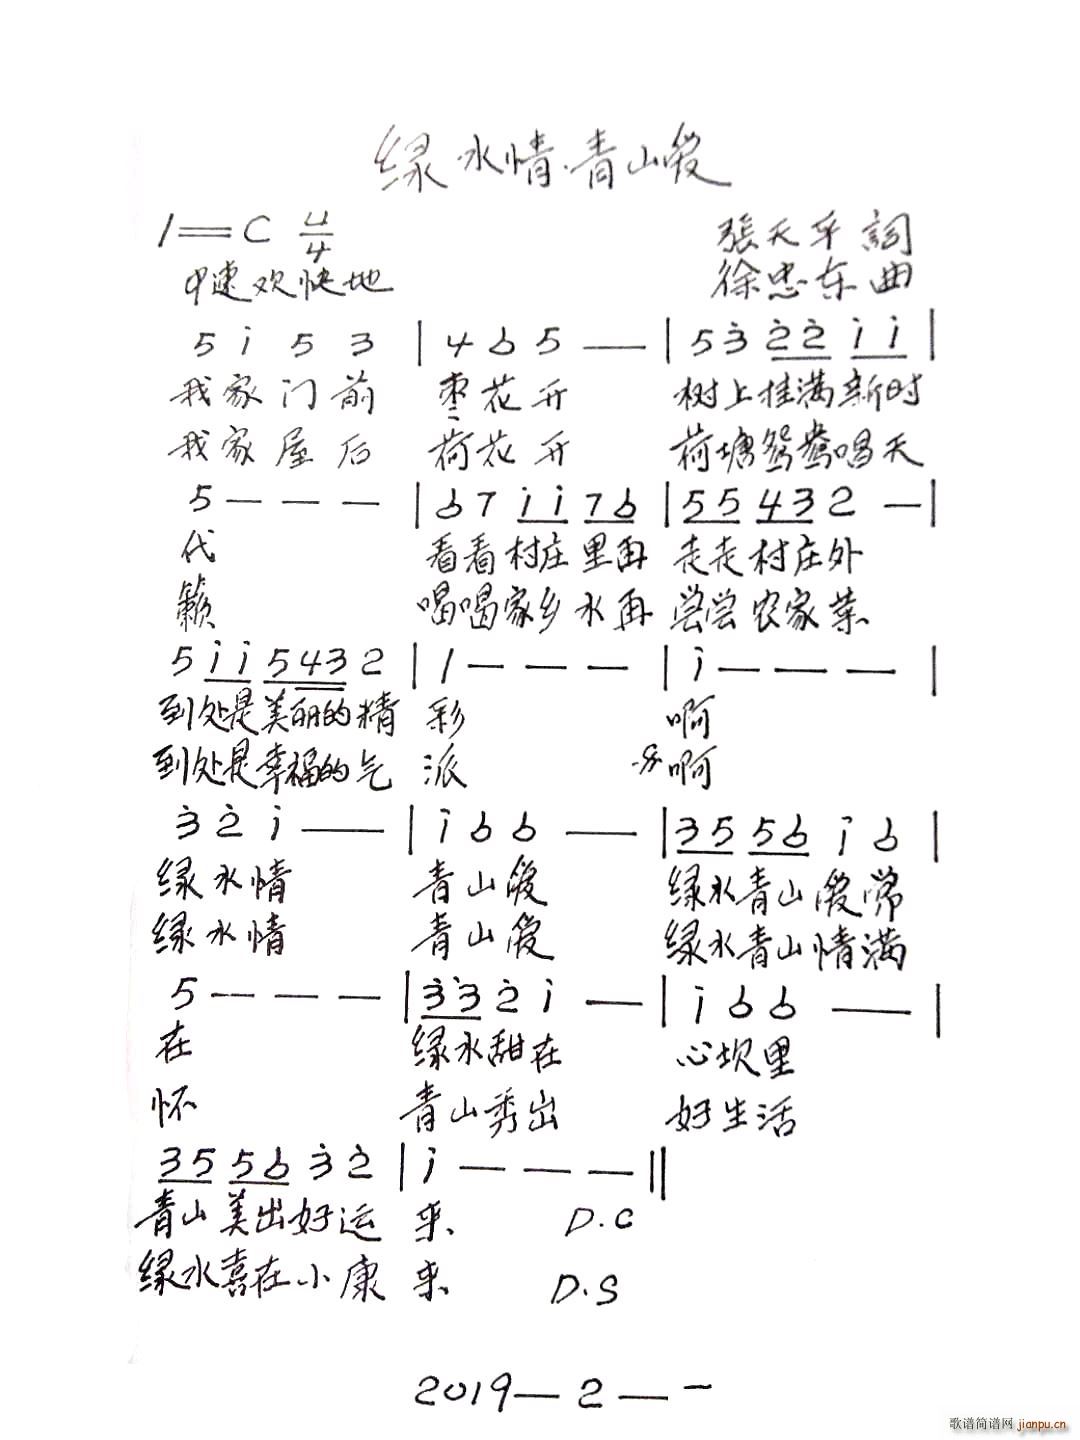 绿水情·青山爱
1=C 4/4
張天乎詞
中速欢快地
徐忠东曲
5 i 5 3 | 4 6 5 — | 5 3 2̇ 2̇ i i |
我家门前 枣花开 树上挂满新时
我家屋后 荷花开 荷塘鸳鸯唱天
5 — — — | 6 7 i i 7 6 | 5 5 4 3 2 — |
代 看看村庄里再 走走村庄外
籁 喝喝家乡水再 尝尝农家菜
5 i i 5 4 3 2 | 1 — — — | i — — — |
到处是美丽的精 彩 啊
到处是幸福的气 派 𝄋啊
3̇ 2̇ i — | i 6 6 — | 3 5 5 6 i 6 |
绿水情 青山爱 绿水青山爱常
绿水情 青山爱 绿水青山情满
5 — — — | 3̇ 3̇ 2̇ i — | i 6 6 — |
在 绿水甜在 心坎里
怀 青山秀出 好生活
3 5 5 6 3̇ 2̇ | i — — — ‖
青山美出好运 来 D.C
绿水喜在小康 来 D.S
2019—2—
歌谱简谱网 jianpu.cn